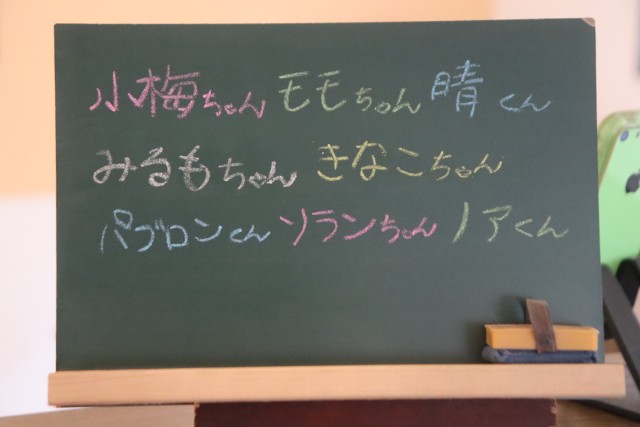 小梅ちゃん モモちゃん 晴くん
みるもちゃん きなこちゃん
パブロンくん ソランちゃん ノアくん